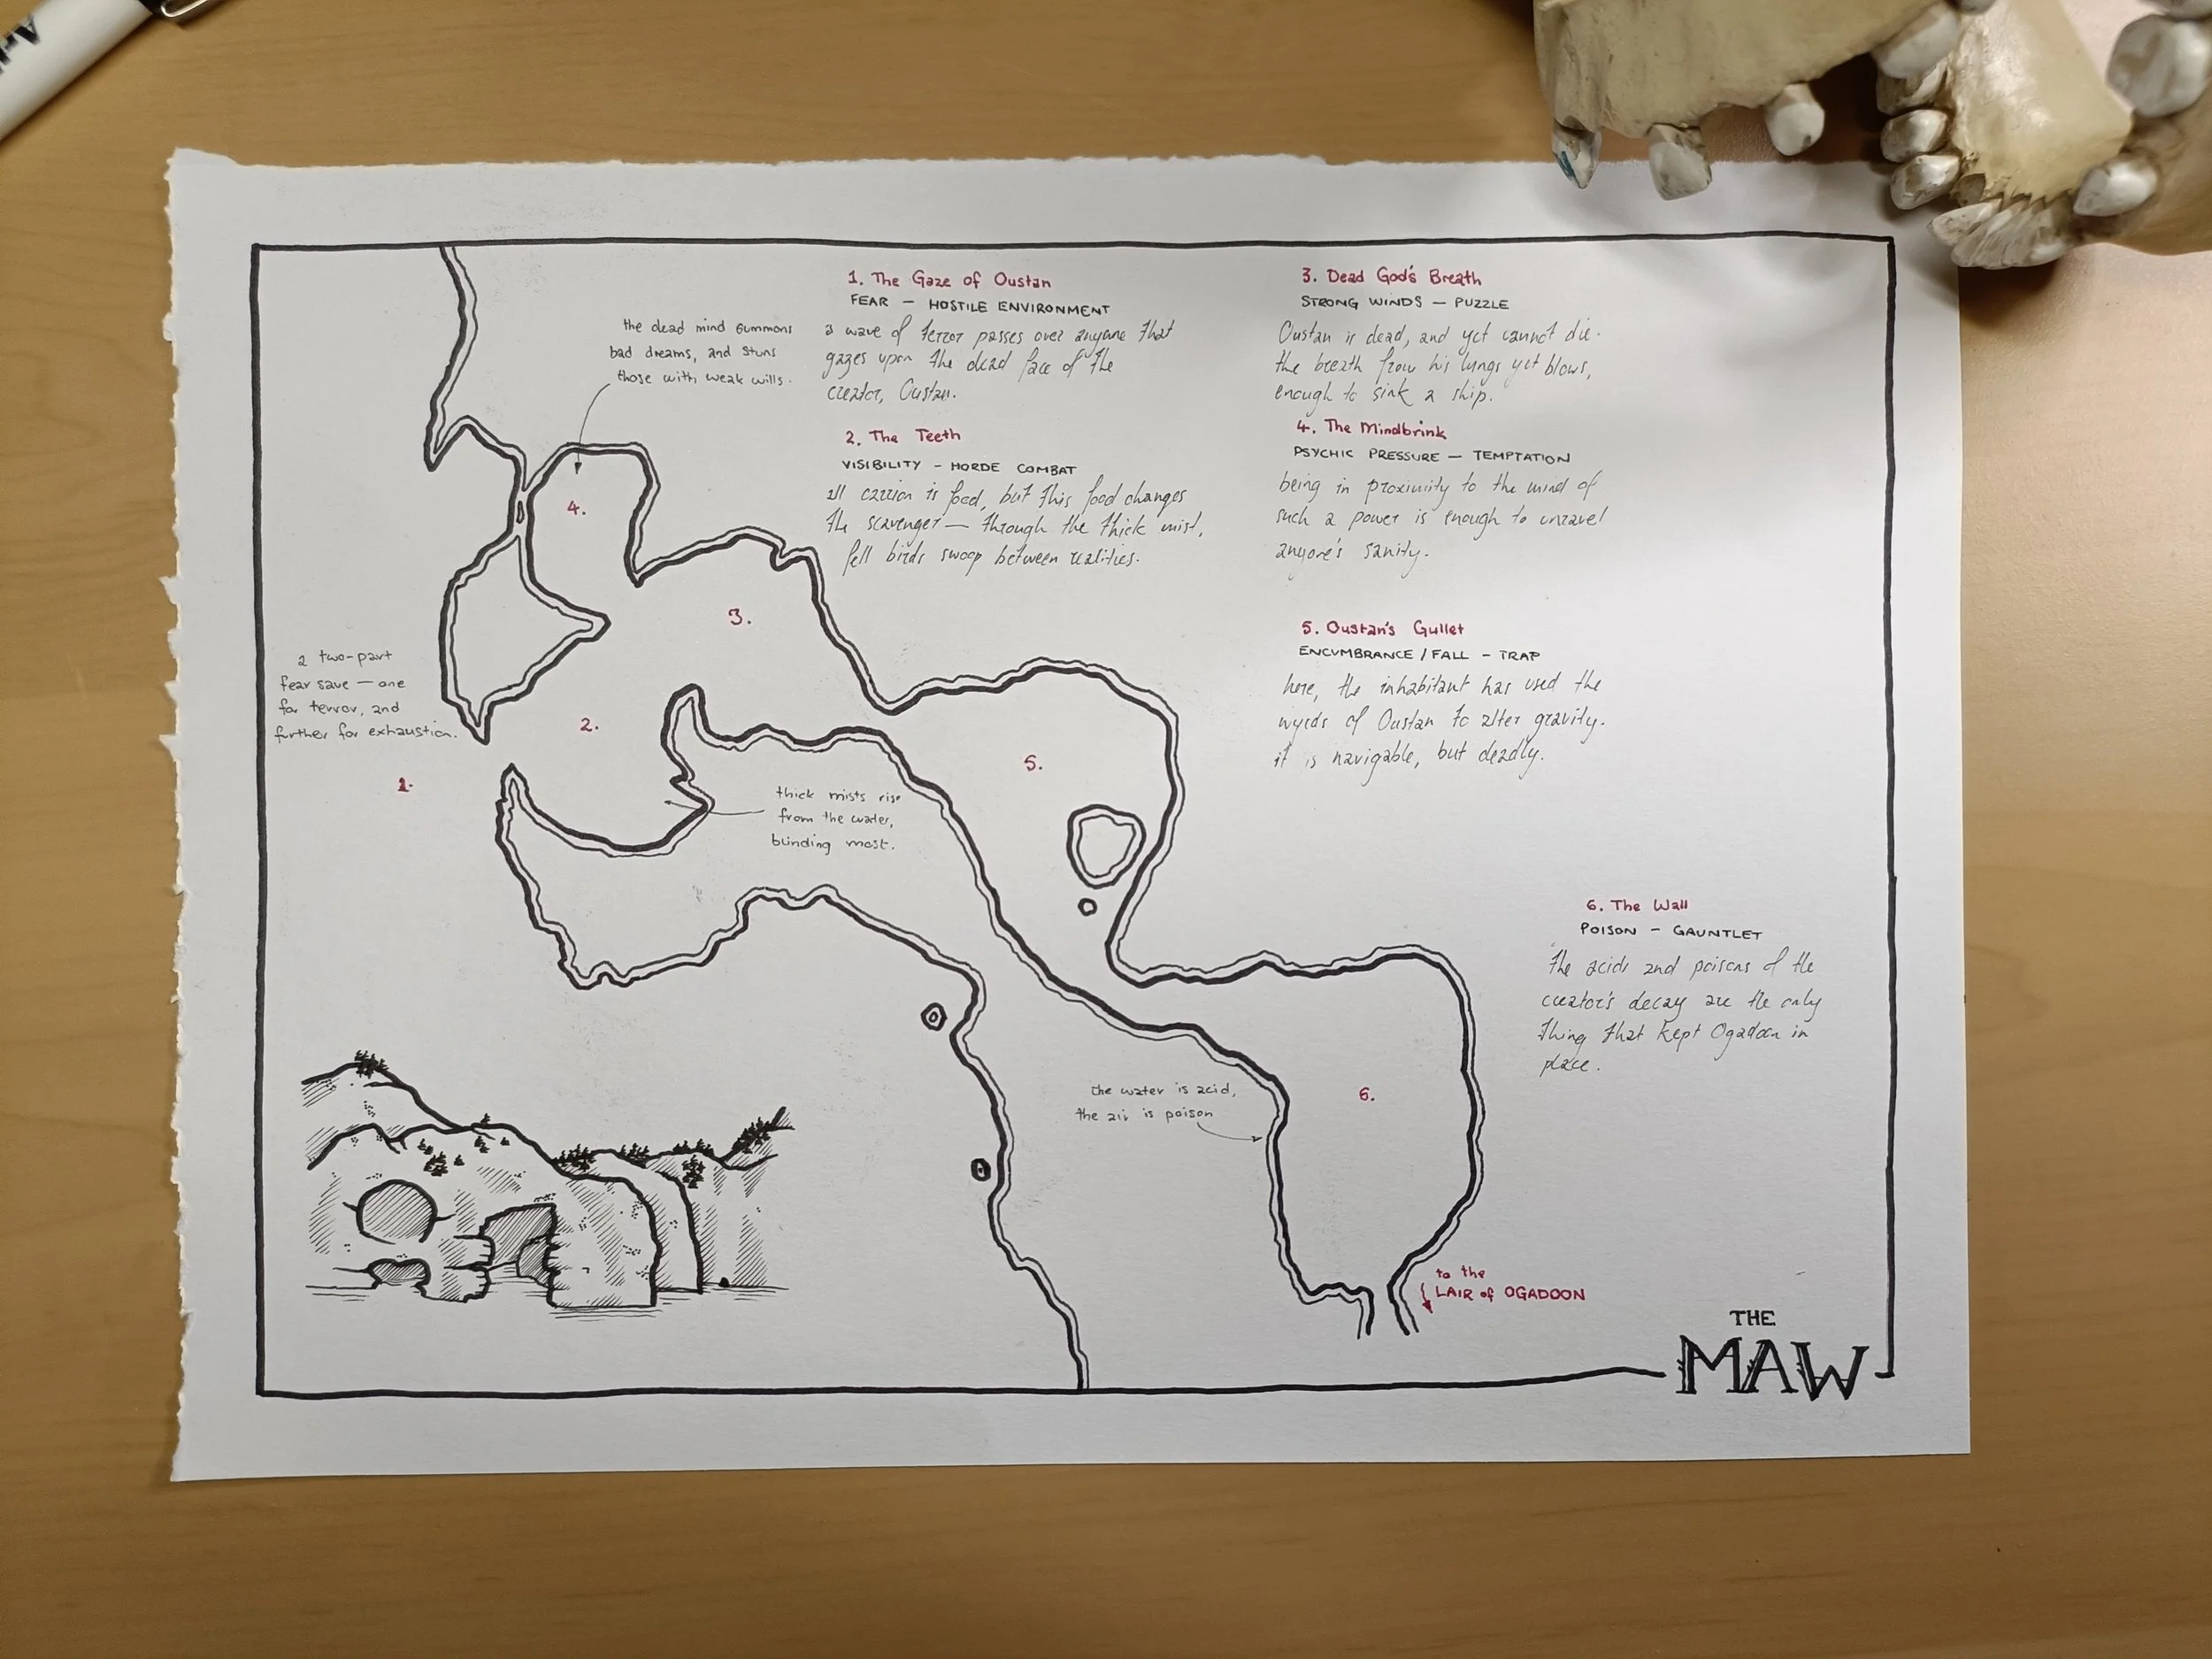 1. The Gaze of Oustan
FEAR — HOSTILE ENVIRONMENT
a wave of terror passes over anyone that
gazes upon the dead face of the
creator, Oustan.
2. The Teeth
VISIBILITY - HORDE COMBAT
all carrion is food, but this food changes
the scavenger — through the thick mist,
fell birds swoop between realities.
3. Dead God's Breath
STRONG WINDS — PUZZLE
Oustan is dead, and yet cannot die.
the breath from his lungs yet blows,
enough to sink a ship.
4. The Mindbrink
PSYCHIC PRESSURE — TEMPTATION
being in proximity to the mind of
such a power is enough to unravel
anyone's sanity.
5. Oustan's Gullet
ENCUMBRANCE / FALL - TRAP
here, the inhabitant has used the
wyrds of Oustan to alter gravity.
it is navigable, but deadly.
6. The Wall
POISON - GAUNTLET
the acids and poisons of the
creator's decay are the only
thing that kept Ogadoon in
place.
the dead mind summons
bad dreams, and stuns
those with weak wills.
4.
3.
a two-part
fear save — one
for terror, and
further for exhaustion.
2.
1.
5.
thick mists rise
from the water,
blinding most.
the water is acid,
the air is poison
6.
to the
LAIR of OGADOON
THE
MAW